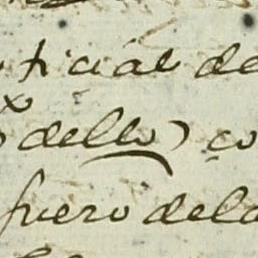 ficial de
dello) co
fuero dela